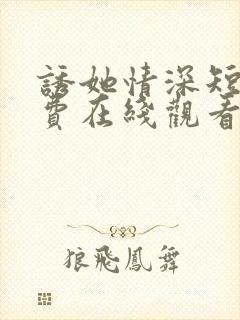 誘她情深短
費在綫觀看
狼飛鳳舞